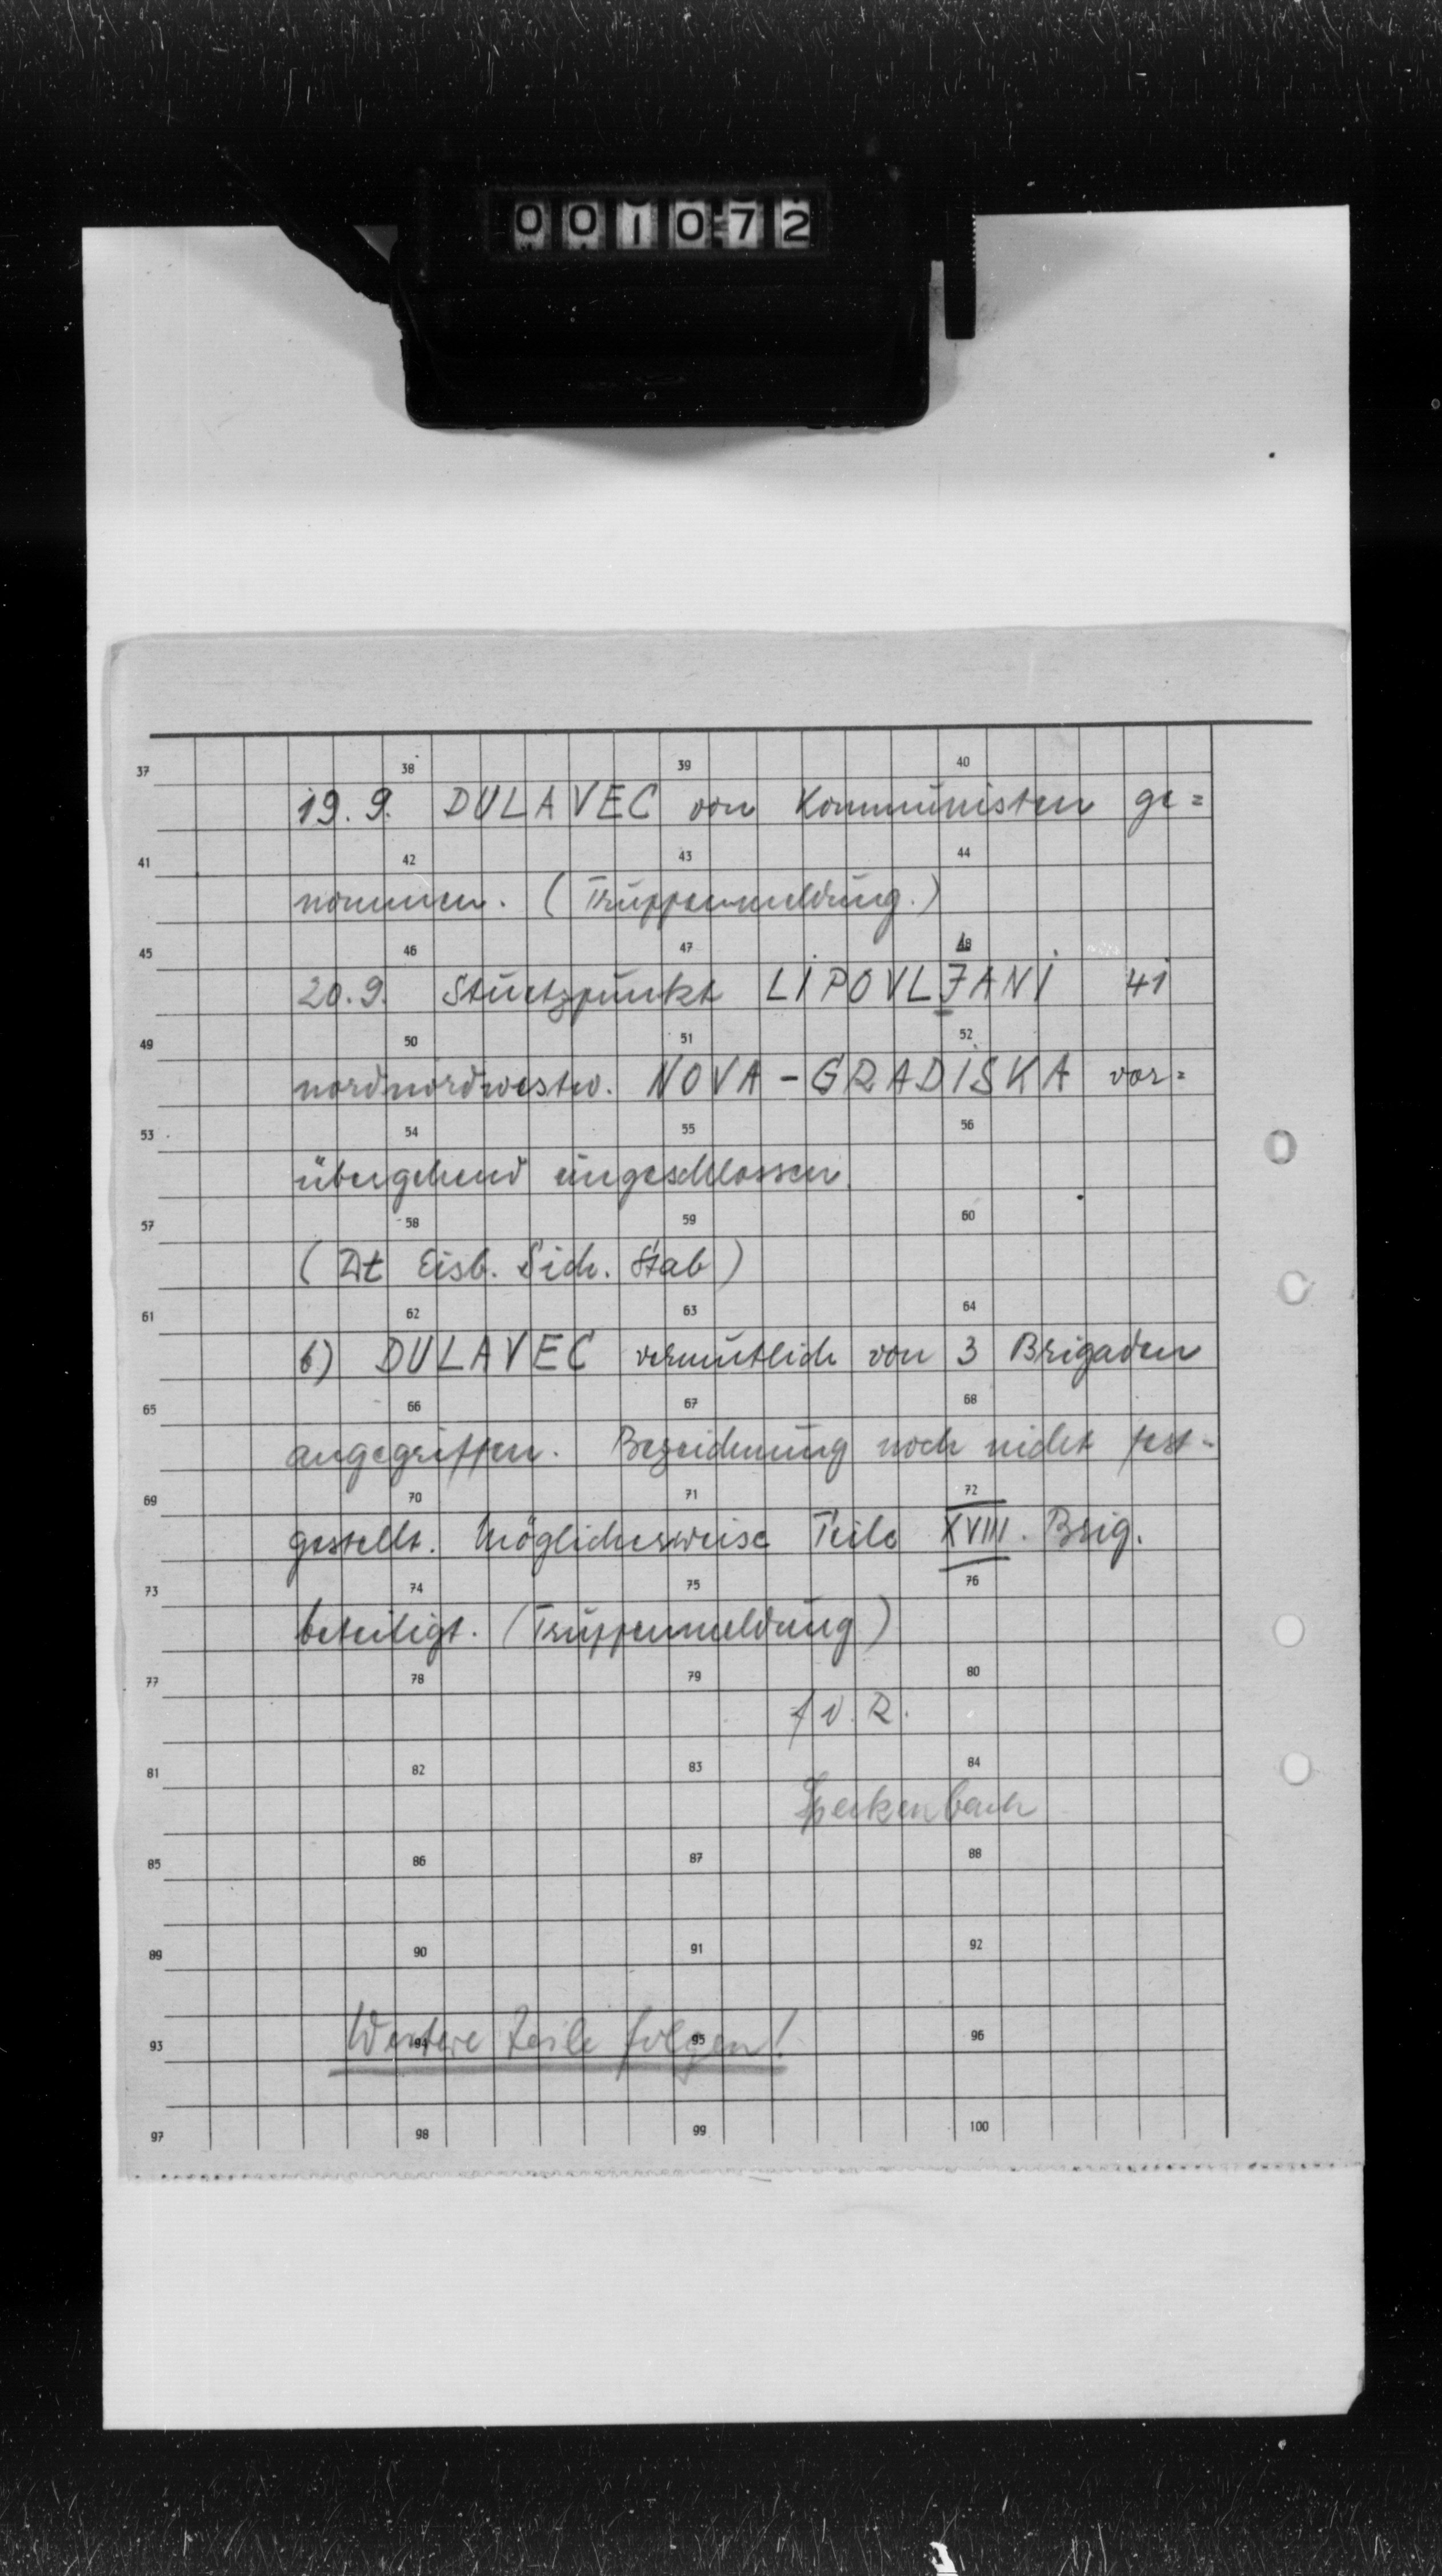 001072
37 38 39 40
19. 9. DULAVEC von Kommunisten ge=
41 42 43 44
nommen. (Truppenmeldung.)
45 46 47 48
20. 9. Stuetzpunkt LIPOVLJANI 41
49 50 51 52
nordnordwestw. NOVA-GRADISKA vor=
53 54 55 56
übergehend eingeschlossen.
57 58 59 60
(Dt Eisb. Sich. Stab)
61 62 63 64
6) DULAVEC vermutlich von 3 Brigaden
65 66 67 68
angegriffen. Bezeichnung noch nicht fest-
69 70 71 72
gestellt. Möglicherweise Teile XVIII. Brig.
73 74 75 76
beteiligt. (Truppenmeldung)
77 78 79 80
f. d. R.
81 82 83 84
85 86 87 88
89 90 91 92
Weitere Teile folgen!
93 94 95 96
97 98 99 100